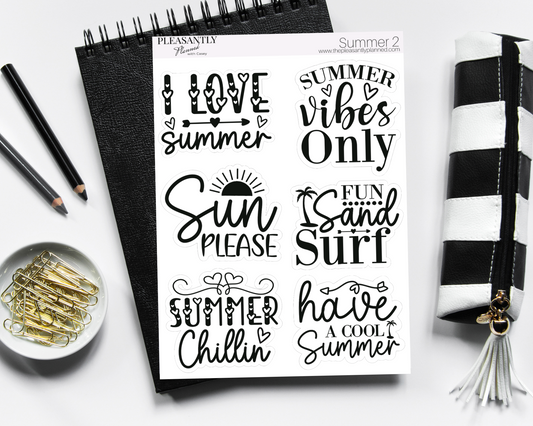 PLEASANTLY
Planned
with Casey
Summer 2
www.thepleasantlyplanned.com
I LOVE
summer
SUMMER
vibes
Only
Sun
PLEASE
FUN
Sand
Surf
SUMMER
Chillin
have
A COOL
Summer